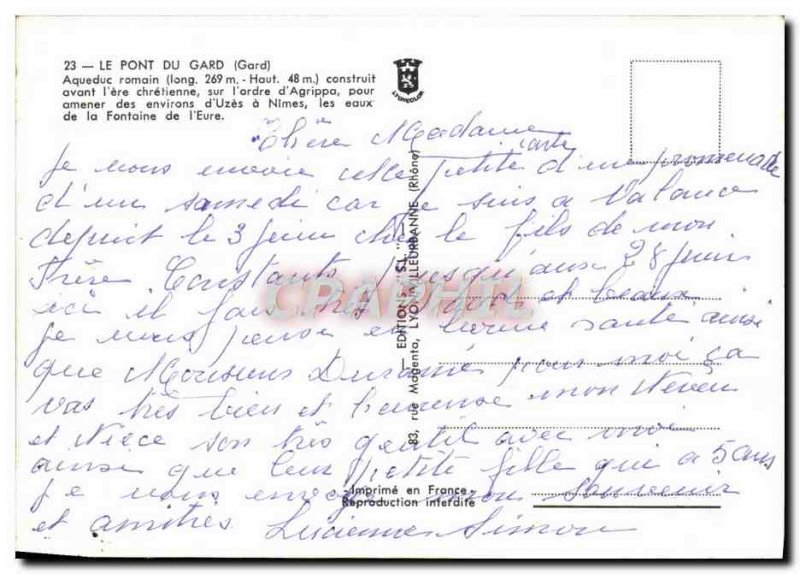 23 — LE PONT DU GARD (Gard)
Aqueduc romain (long. 269 m. - Haut. 48 m.) construit
avant l'ère chrétienne, sur l'ordre d'Agrippa, pour
amener des environs d'Uzès à Nîmes, les eaux
de la Fontaine de l'Eure.
LYONCOLOR
Chère Madame
carte
je vous envoie cette petite d'une promenade
d'un samedi car je suis a Valance
depuit le 3 juin chez le fils de mon
frère Constants jusqu'aux 28 juin
ici il fais très et beaux
je vous pense en bonne santé ainsi
que Monsieur pour moi ça
vas très bien et heureuse mon Neveu
et Nièce son très gentil avec moi
ainsi que leur petite fille qui a 5 ans
je vous mon Souvenir
et amitiés Lucienne Simon
— EDITIONS "S.L." —
83, rue Magenta, LYON-VILLEURBANNE (Rhône)
Imprimé en France
Reproduction interdite
CPAPHIL